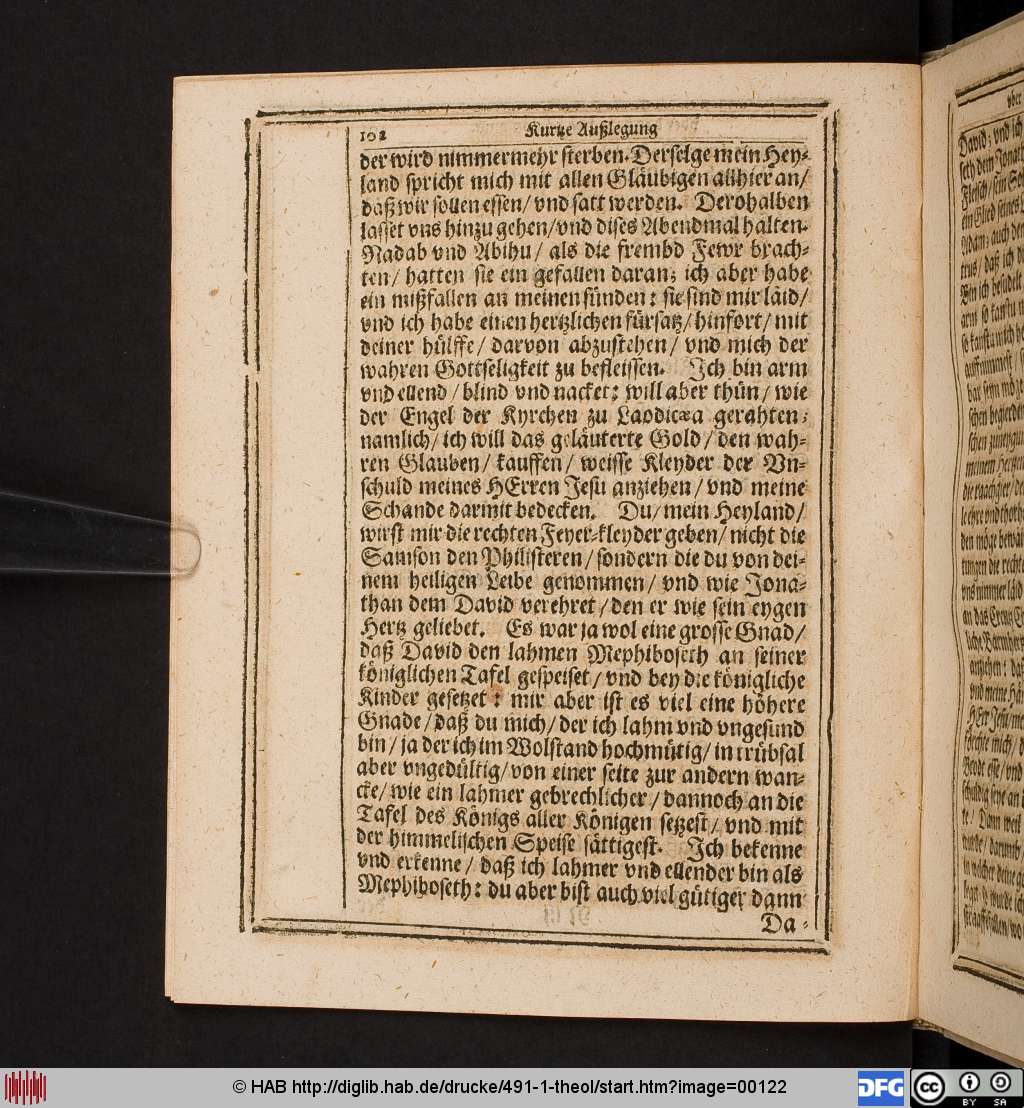 102 Kurtze Außlegung
der wird nimmermehr sterben. Derselge mein Hey-
land spricht mich mit allen Gläubigen allhier an/
daß wir sollen essen/ vnd satt werden. Derohalben
lasset vns hinzu gehen/ vnd dises Abendmal halten.
Nadab vnd Abihu/ als die frembd Fewr brach-
ten/ hatten sie ein gefallen daran; ich aber habe
ein mißfallen an meinen sünden: sie sind mir läid/
vnd ich habe einen hertzlichen fürsatz/ hinfort/ mit
deiner hülffe/ darvon abzustehen/ vnd mich der
wahren Gottseligkeit zu befleissen. Ich bin arm
vnd ellend/ blind vnd nacket: will aber thün/ wie
der Engel der Kyrchen zu Laodicæa gerahten;
namlich/ ich will das geläuterte Gold/ den wah-
ren Glauben/ kauffen/ weisse Kleyder der Vn-
schuld meines HErren Jesu anziehen/ vnd meine
Schande darmit bedecken. Du/ mein Heyland/
wirst mir die rechten Feyer-kleyder geben/ nicht die
Samson den Philisteren/ sondern die du von dei-
nem heiligen Leibe genommen/ vnd wie Jona-
than dem David verehret/ den er wie sein eygen
Hertz geliebet. Es war ja wol eine grosse Gnad/
daß David den lahmen Mephiboseth an seiner
königlichen Tafel gespeiset/ vnd bey die königliche
Kinder gesetzet: mir aber ist es viel eine höhere
Gnade/ daß du mich/ der ich lahm vnd vngesund
bin/ ja der ich im Wolstand hochmütig/ in trübsal
aber vngedültig/ von einer seite zur andern wan-
cke/ wie ein lahmer gebrechlicher/ dannoch an die
Tafel des Königs aller Königen setzest/ vnd mit
der himmelischen Speise sättigest. Ich bekenne
vnd erkenne/ daß ich lahmer vnd ellender bin als
Mephiboseth: du aber bist auch viel gütiger dann
Da-
© HAB http://diglib.hab.de/drucke/491-1-theol/start.htm?image=00122
DFG
cc BY SA